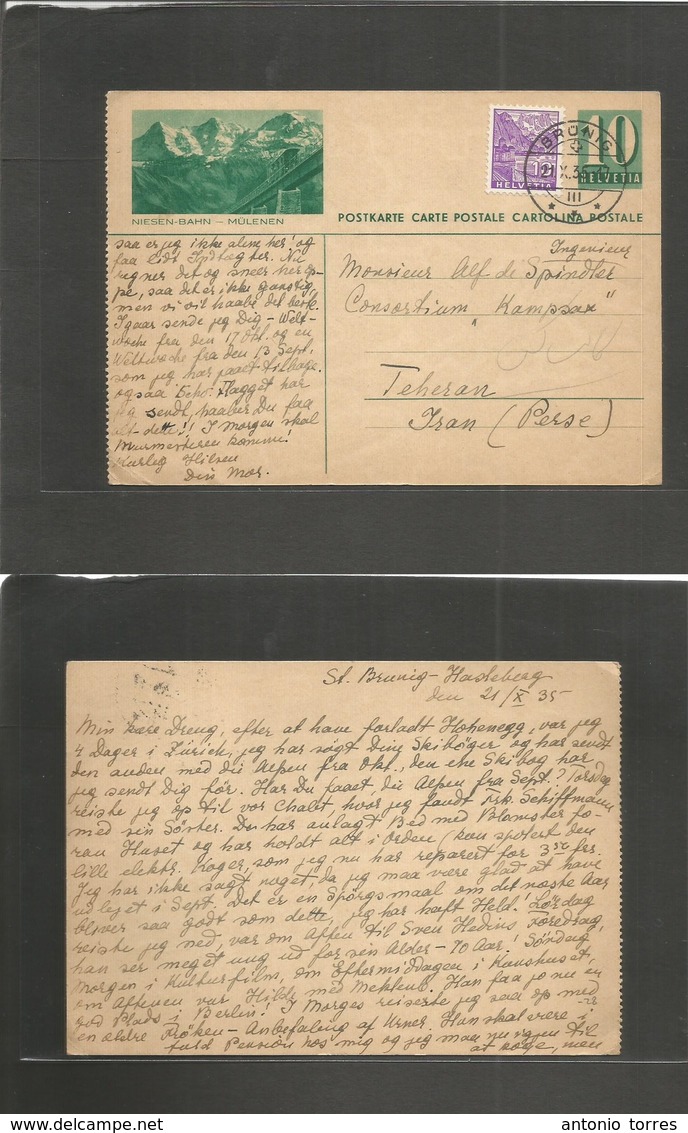 NIESEN-BAHN – MÜLENEN
POSTKARTE CARTE POSTALE CARTOLINA POSTALE
10
HELVETIA
10
HELVETIA
BRÜNIG
21.X.35
III
saa er jeg ikke alene her! og
faa lidt Nu
regner det og sneer her op-
pe, saa det er ikke gunstig,
men vi vil haabe det beste.
Igaar sende jeg Dig – Welt-
woche fra den 17 Okt. og en
Weltwoche fra den 13 Sept.
som jeg har faaet tilbage.
ogsaa Echo. Flagget har
jeg sendt, haaber Du faa
alt dette!! I Morgen skal
komme!
Kærlig Hilsen
Din Mor.
Ingenieur
Monsieur Alf de Spindler
Consortium "Kampsax"
Teheran
Iran (Perse)
St. Brunig-Hasleberg
den 21/X 35
Min kære Dreng, efter at have forladt Hohenegg, var jeg
4 Dager i Zürich, jeg har søgt Dine Skibøger og har sendt
den anden med die Alpen fra Okt., den ene Skibog har
jeg sendt Dig før. Har Du faaet, die Alpen fra Sept.? Torsdag
reiste jeg op til vor Chalet, hvor jeg fandt Frk. Schiffmann
med sin Søster. De har anlagt Bed med Blomster fo-
ran Huset og har holdt alt i Orden (kun spolert den
lille elektr. Koger, som jeg nu har repareret for 3 50 frs.
Jeg har ikke sagt noget, da jeg maa være glad at have
udlejet i Sept. Det er en Spørgsmaal om det næste Aar
bliver saa godt som dette, jeg har haft Held! Lørdag
reiste jeg ned, var om Aften til Sven Hedins Foredrag,
han ser meget ung ud for sin Alder – 70 Aar! Søndag
Morgen i Kulturfilm, om Eftermiddagen i Kunshuset,
om Aftenen var Hilde med Han faa jo nu en
god Plads i Berlin! I Morges reiserte jeg saa op med
en ældre Frøken – Anbefaling af Hun skal være i
fuld Pension hos mig og jeg maa nu igen til
at koge, men
www.delcampe.net
antonio torres